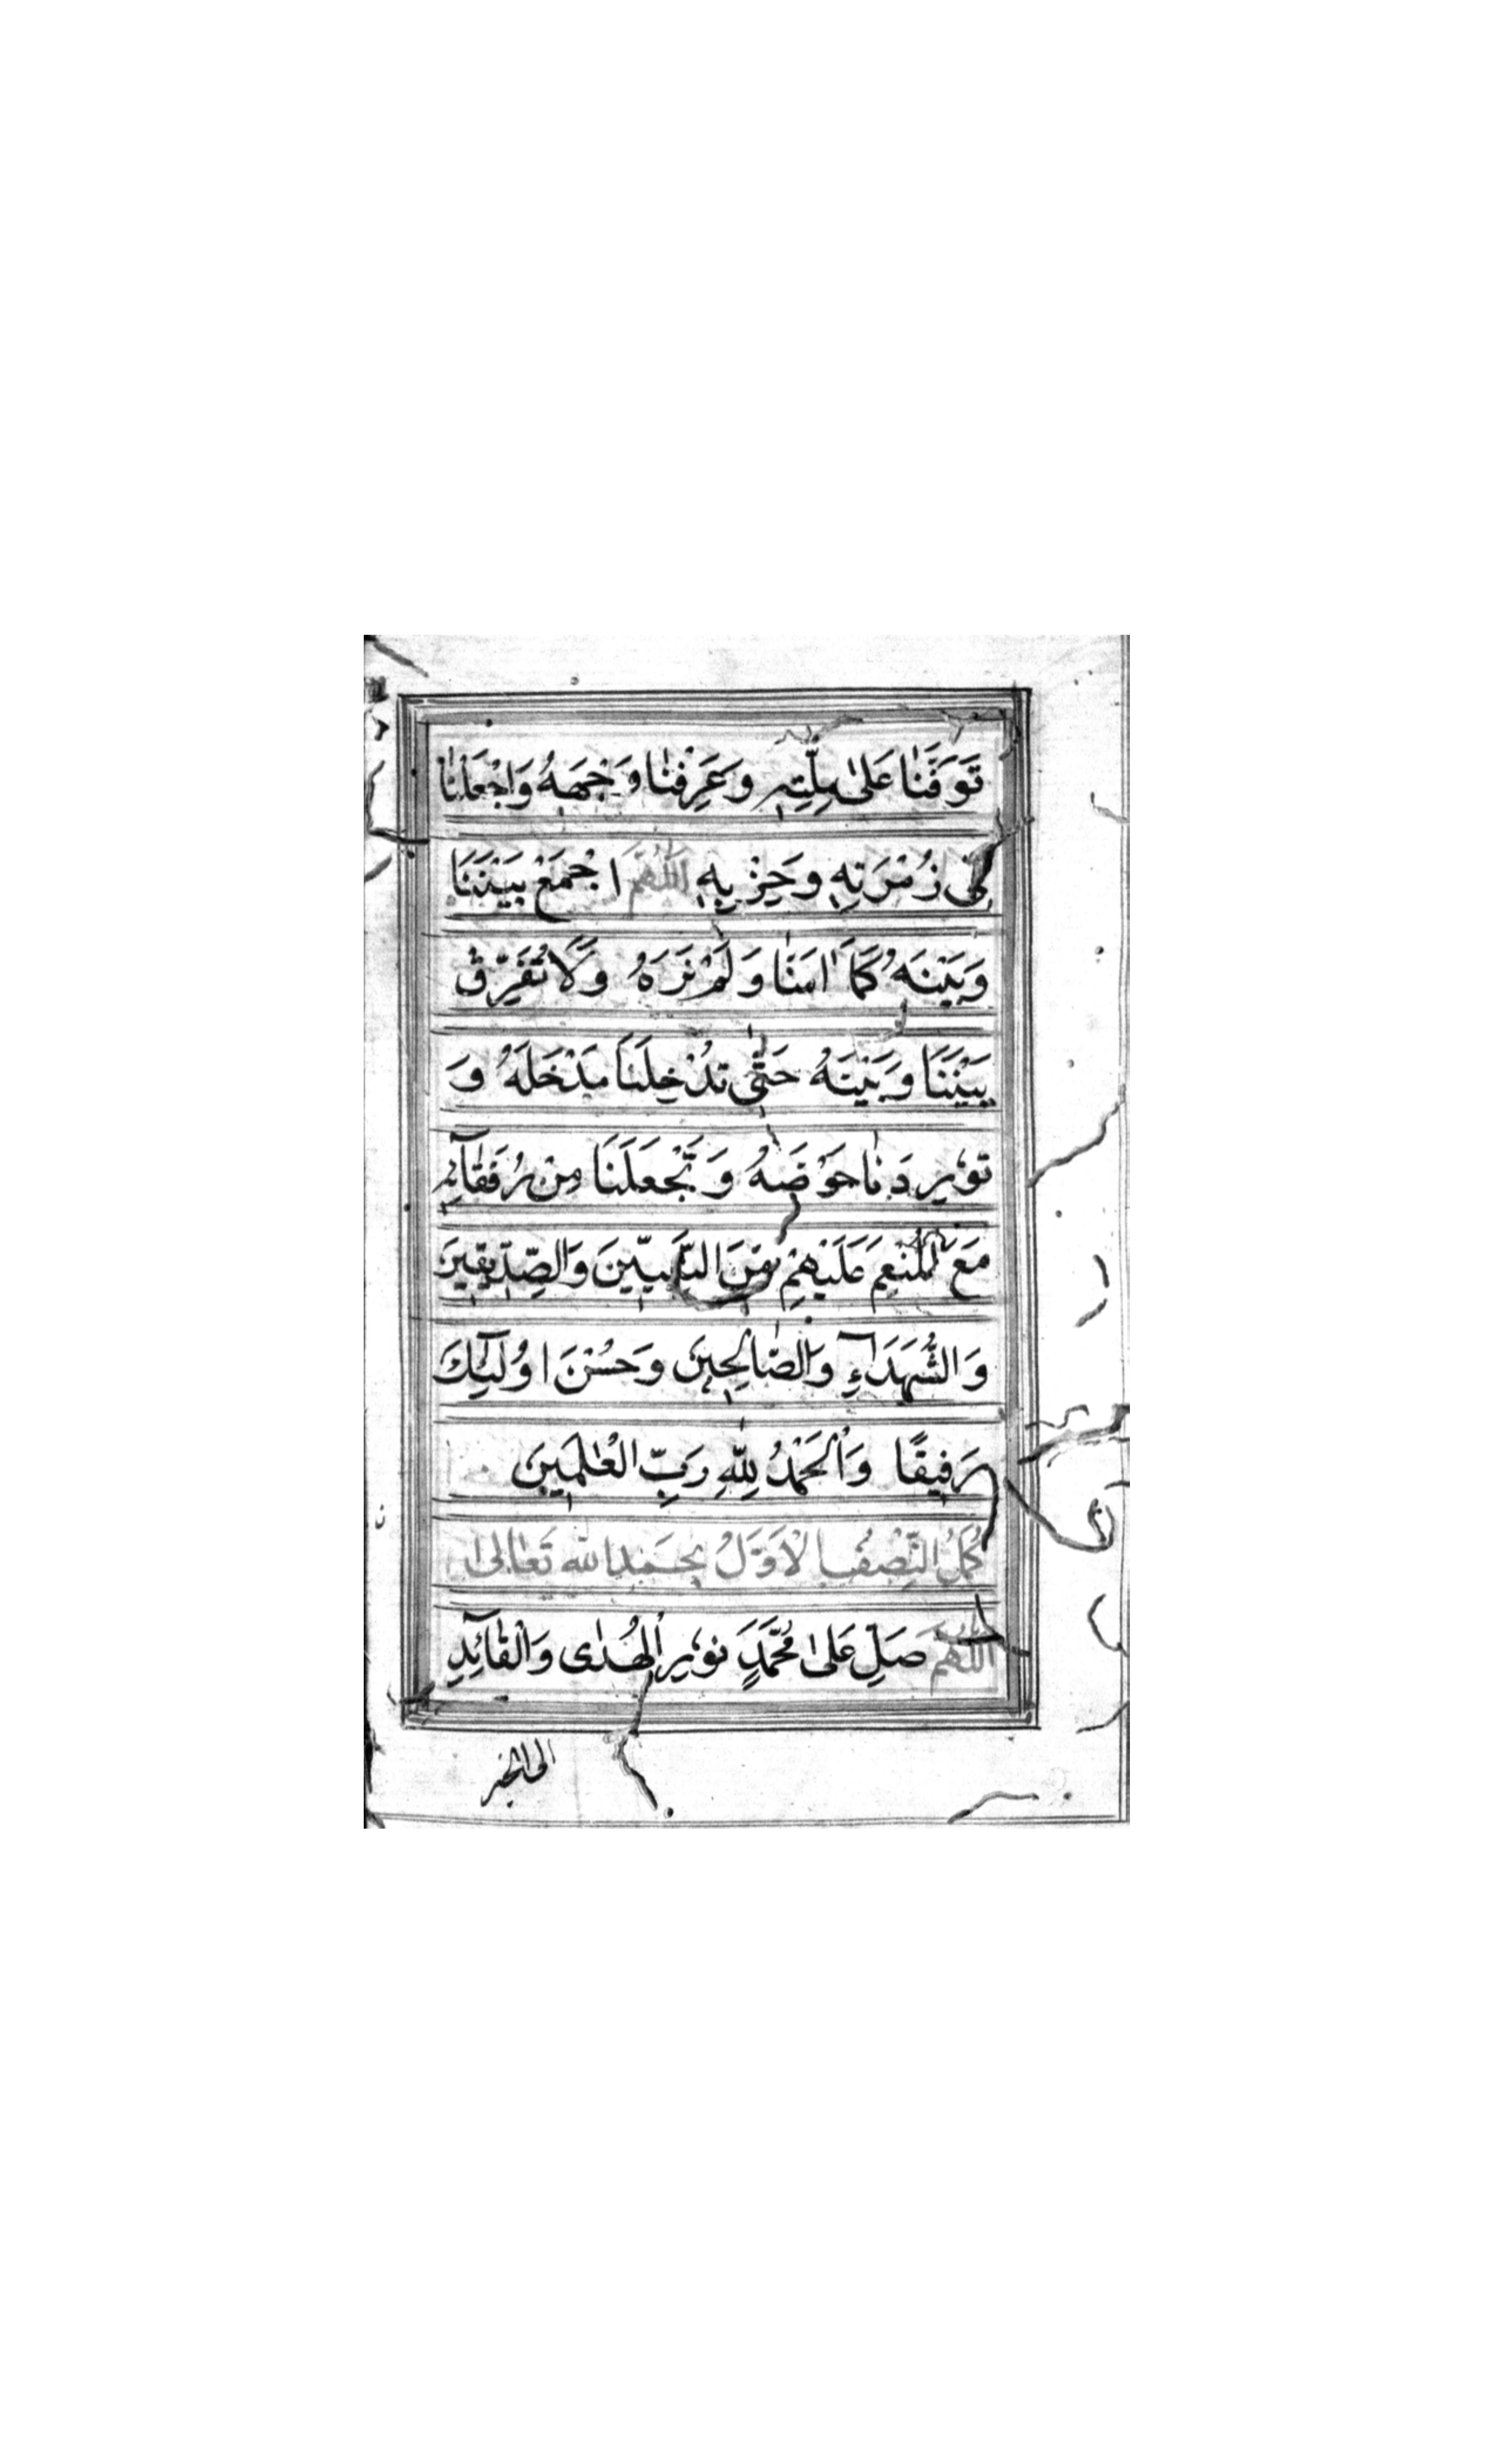 تَوَفَّنَا عَلٰى مِلَّتِهٖ وَعَرِّفْنَا وَجْهَهُ وَاجْعَلْنَا
فِى زُمْرَتِهٖ وَحِزْبِهٖ اَللّٰهُمَّ اجْمَعْ بَيْنَنَا
وَبَيْنَهُ كَمَا اٰمَنَّا وَلَمْ نَرَهُ وَلَا تُفَرِّقْ
بَيْنَنَا وَبَيْنَهُ حَتّٰى تُدْخِلَنَا مَدْخَلَهُ وَ
تُوْرِدَنَا حَوْضَهُ وَتَجْعَلَنَا مِنْ رُفَقَآئِهٖ
مَعَ الْمُنْعَمِ عَلَيْهِمْ مِنَ النَّبِيّٖنَ وَالصِّدِّيْقِيْنَ
وَالشُّهَدَآءِ وَالصَّالِحِيْنَ وَحَسُنَ اُولٰٓئِكَ
رَفِيْقًا وَالْحَمْدُ لِلّٰهِ رَبِّ الْعٰلَمِيْنَ
كَمُلَ النِّصْفُ الْاَوَّلُ بِحَمْدِ اللّٰهِ تَعَالٰى
اَللّٰهُمَّ صَلِّ عَلٰى مُحَمَّدٍ نُوْرِ الْهُدٰى وَالْقَآئِدِ
الى الخير